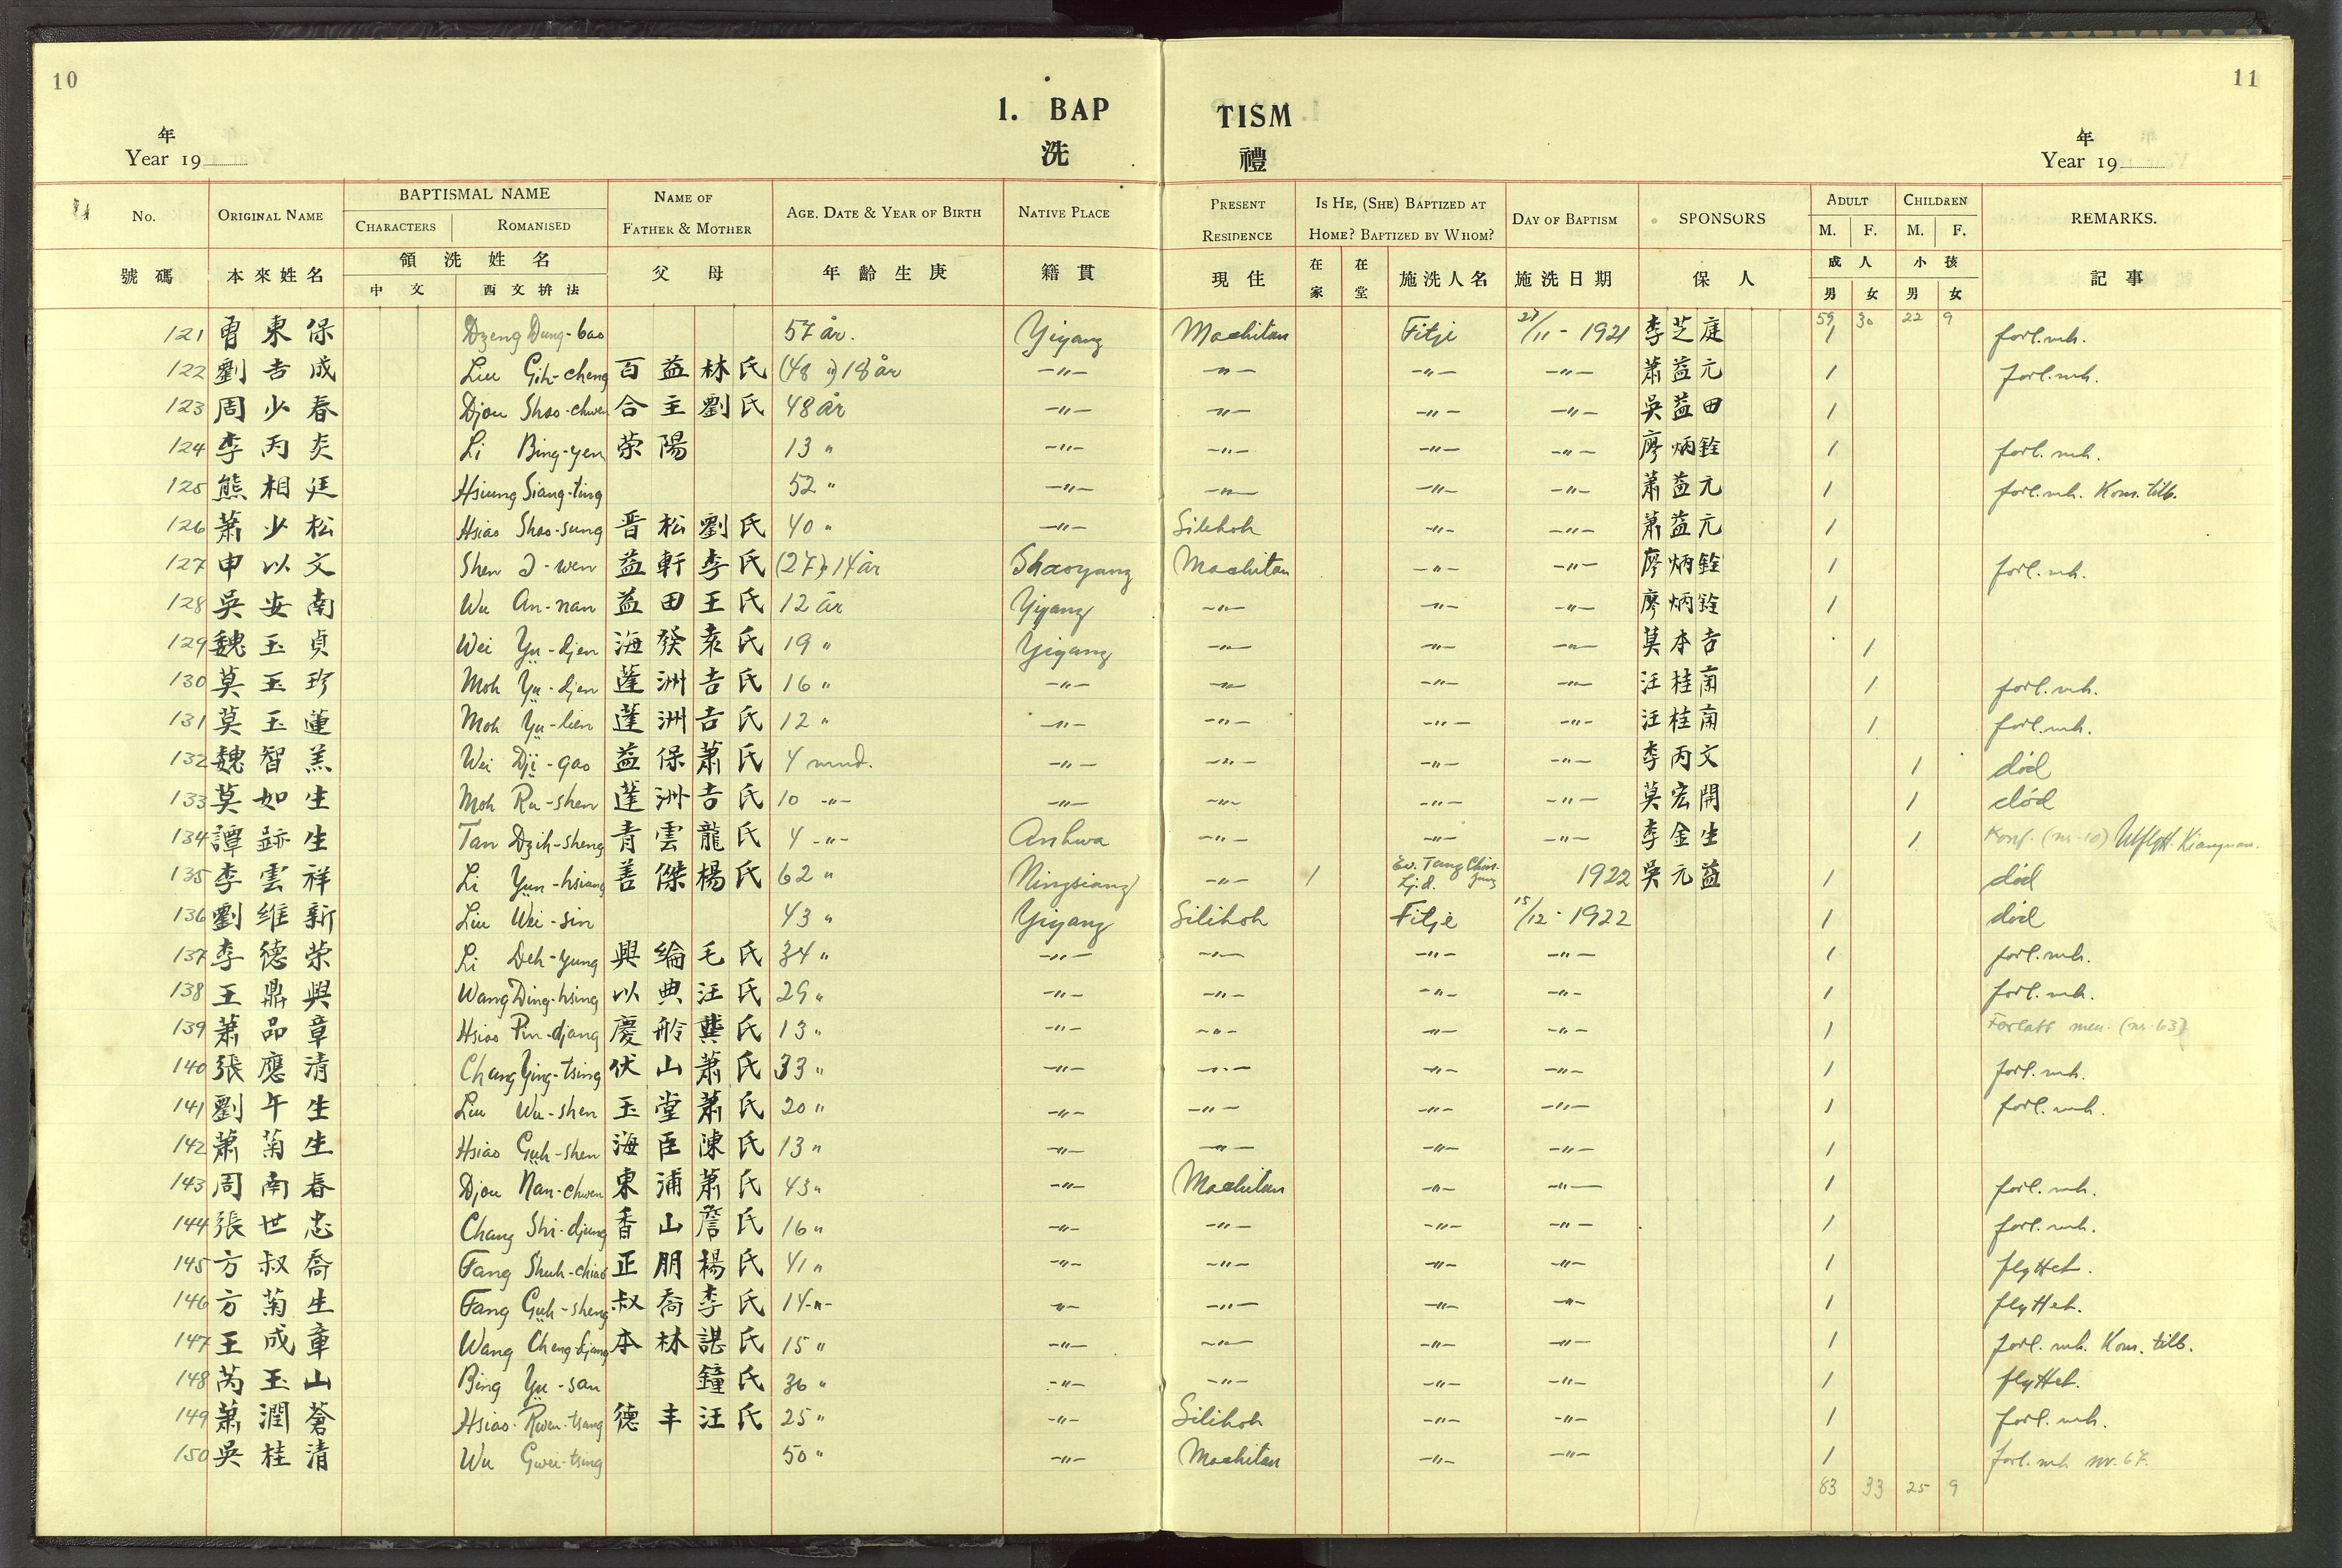 10
11
1. BAP TISM
洗 禮
年
Year 19
年
Year 19
No. ORIGINAL NAME BAPTISMAL NAME NAME OF FATHER & MOTHER AGE. DATE & YEAR OF BIRTH NATIVE PLACE PRESENT RESIDENCE IS HE, (SHE) BAPTIZED AT HOME? BAPTIZED BY WHOM? DAY OF BAPTISM SPONSORS ADULT CHILDREN REMARKS.
CHARACTERS ROMANISED M. F. M. F.
號碼 本來姓名 領洗姓名 父母 年齡生庚 籍貫 現住 在家 在堂 施洗人名 施洗日期 保人 成人 小孩 記事
中文 西文拚法 男 女 男 女
59 30 22 9
121 曾東保 Dzeng Dung-bao 57 år. Yiyang Machitan Fitje 27/11 - 1921 李芝庭 1 forl. mh.
122 劉吉成 Liu Gih-cheng 百益林氏 (48 ") 18 år -"- -"- -"- -"- 蕭益元 1 forl. mh.
123 周少春 Djou Shao-chwen 合主劉氏 48 år -"- -"- -"- -"- 吳益田 1
124 李丙炎 Li Bing-yen 荣陽 13 " -"- -"- -"- -"- 廖炳銓 1 forl. mh.
125 熊相廷 Hsiung Siang-ting 52 " -"- -"- -"- -"- 蕭益元 1 forl. mh. Kom. tilb.
126 蕭少松 Hsiao Shao-sung 晋松劉氏 40 " -"- Silihoh -"- -"- 蕭益元 1
127 申以文 Shen I-wen 益軒李氏 (27 ") 14 år Shaoyang Machitan -"- -"- 廖炳銓 1 forl. mh.
128 吳安南 Wu An-nan 益田王氏 12 år Yiyang -"- -"- -"- 廖炳銓 1
129 魏玉貞 Wei Yü-djen 海發袁氏 19 " Yiyang -"- -"- -"- 莫本吉 1
130 莫玉珍 Moh Yü-djen 蓬洲吉氏 16 " -"- -"- -"- -"- 汪桂南 1 forl. mh.
131 莫玉蓮 Moh Yü-lien 蓬洲吉氏 12 " -"- -"- -"- -"- 汪桂南 1 forl. mh.
132 魏智羔 Wei Dji-gao 益保蕭氏 4 mnd. -"- -"- -"- -"- 李丙文 1 död
133 莫如生 Moh Ru-shen 蓬洲吉氏 10 -"- -"- -"- -"- -"- 莫宏開 1 död
134 譚跡生 Tan Dzih-sheng 青雲龍氏 4 -"- Anhwa -"- -"- -"- 李金生 1 Konf. (nr. 10) Utflytt.
135 李雲祥 Li Yün-hsiang 善傑楊氏 62 " Ningsiang -"- 1 Ev. Tang 1922 吳元益 1 död
136 劉維新 Liu Wei-sin 43 " Yiyang Silihoh Fitje 15/12 - 1922 1 död
137 李德荣 Li Deh-yung 興綸毛氏 34 " -"- -"- -"- -"- 1 forl. mh.
138 王鼎興 Wang Ding-hsing 以典汪氏 29 " -"- -"- -"- -"- 1 forl. mh.
139 蕭品章 Hsiao Pin-djang 慶舲龔氏 13 " -"- -"- -"- -"- 1 Forlatt men. (nr. 63)
140 張應清 Chang Ying-tsing 伏山蕭氏 33 " -"- -"- -"- -"- 1 forl. mh.
141 劉午生 Liu Wu-shen 玉堂蕭氏 20 " -"- -"- -"- -"- 1 forl. mh.
142 蕭菊生 Hsiao Güh-shen 海臣陳氏 13 " -"- -"- -"- -"- 1
143 周南春 Djou Nan-chwen 東浦蕭氏 43 " -"- Machitan -"- -"- 1 forl. mh.
144 張世忠 Chang Shi-djung 香山詹氏 16 " -"- -"- -"- -"- 1 forl. mh.
145 方叔喬 Fang Shuh-chiao 正朋楊氏 41 " -"- -"- -"- -"- 1 flyttet.
146 方菊生 Fang Güh-sheng 叔喬李氏 14 -"- -"- -"- -"- -"- 1 flyttet.
147 王成章 Wang Cheng-djang 本林諶氏 15 " -"- -"- -"- -"- 1 forl. mh. Kom. tilb.
148 芮玉山 Bing Yü-san 鐘氏 36 " -"- -"- -"- -"- 1 flyttet.
149 蕭潤蒼 Hsiao Rwen-tsang 德丰汪氏 25 " -"- Silihoh -"- -"- 1 forl. mh.
150 吳桂清 Wu Gwei-tsing 50 " -"- Machitan -"- -"- 1 forl. mh nr. 67.
83 33 25 9